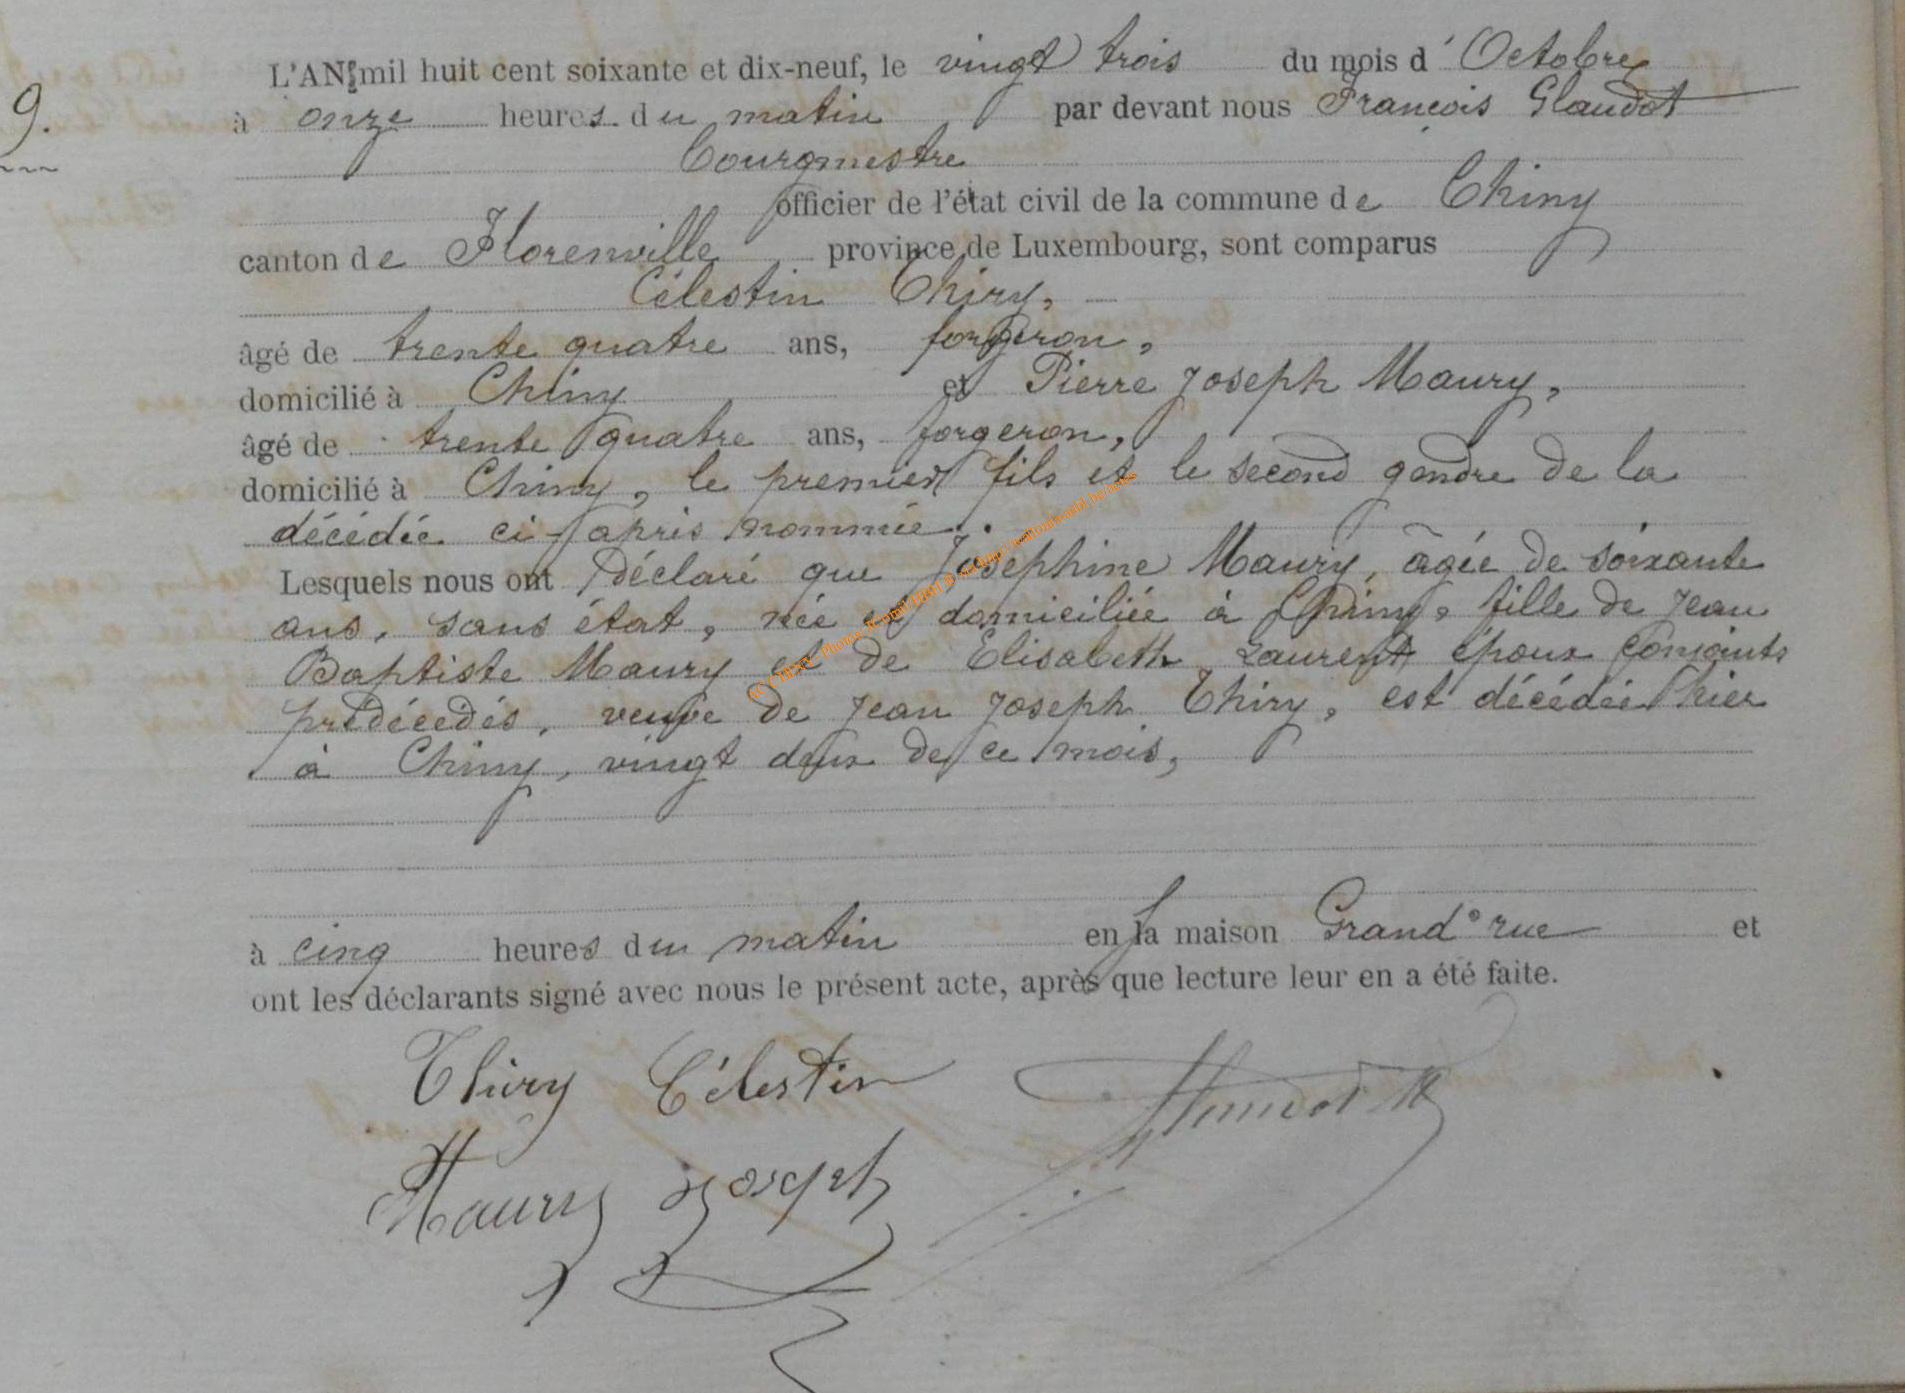 L'AN mil huit cent soixante et dix-neuf, le vingt trois du mois d' Octobre
9.
à onze heures du matin par devant nous François Glaudot
bourgmestre
officier de l'état civil de la commune de Chiny
canton de Florenville province de Luxembourg, sont comparus
Célestin Thiry,
âgé de trente quatre ans, forgeron,
domicilié à Chiny et Pierre Joseph Maury,
âgé de trente quatre ans, forgeron,
domicilié à Chiny, le premier fils et le second gendre de la
décédée ci-après nommée.
Lesquels nous ont déclaré que Joséphine Maury, âgée de soixante
ans, sans état, née et domiciliée à Chiny, fille de Jean
Baptiste Maury et de Elisabeth Laurent époux conjoints
prédécedés, veuve de Jean Joseph Thiry, est décédée hier
à Chiny, vingt deux de ce mois,
à cinq heures du matin en sa maison Grand'rue et
ont les déclarants signé avec nous le présent acte, après que lecture leur en a été faite.
Thiry Célestin
Maury Joseph